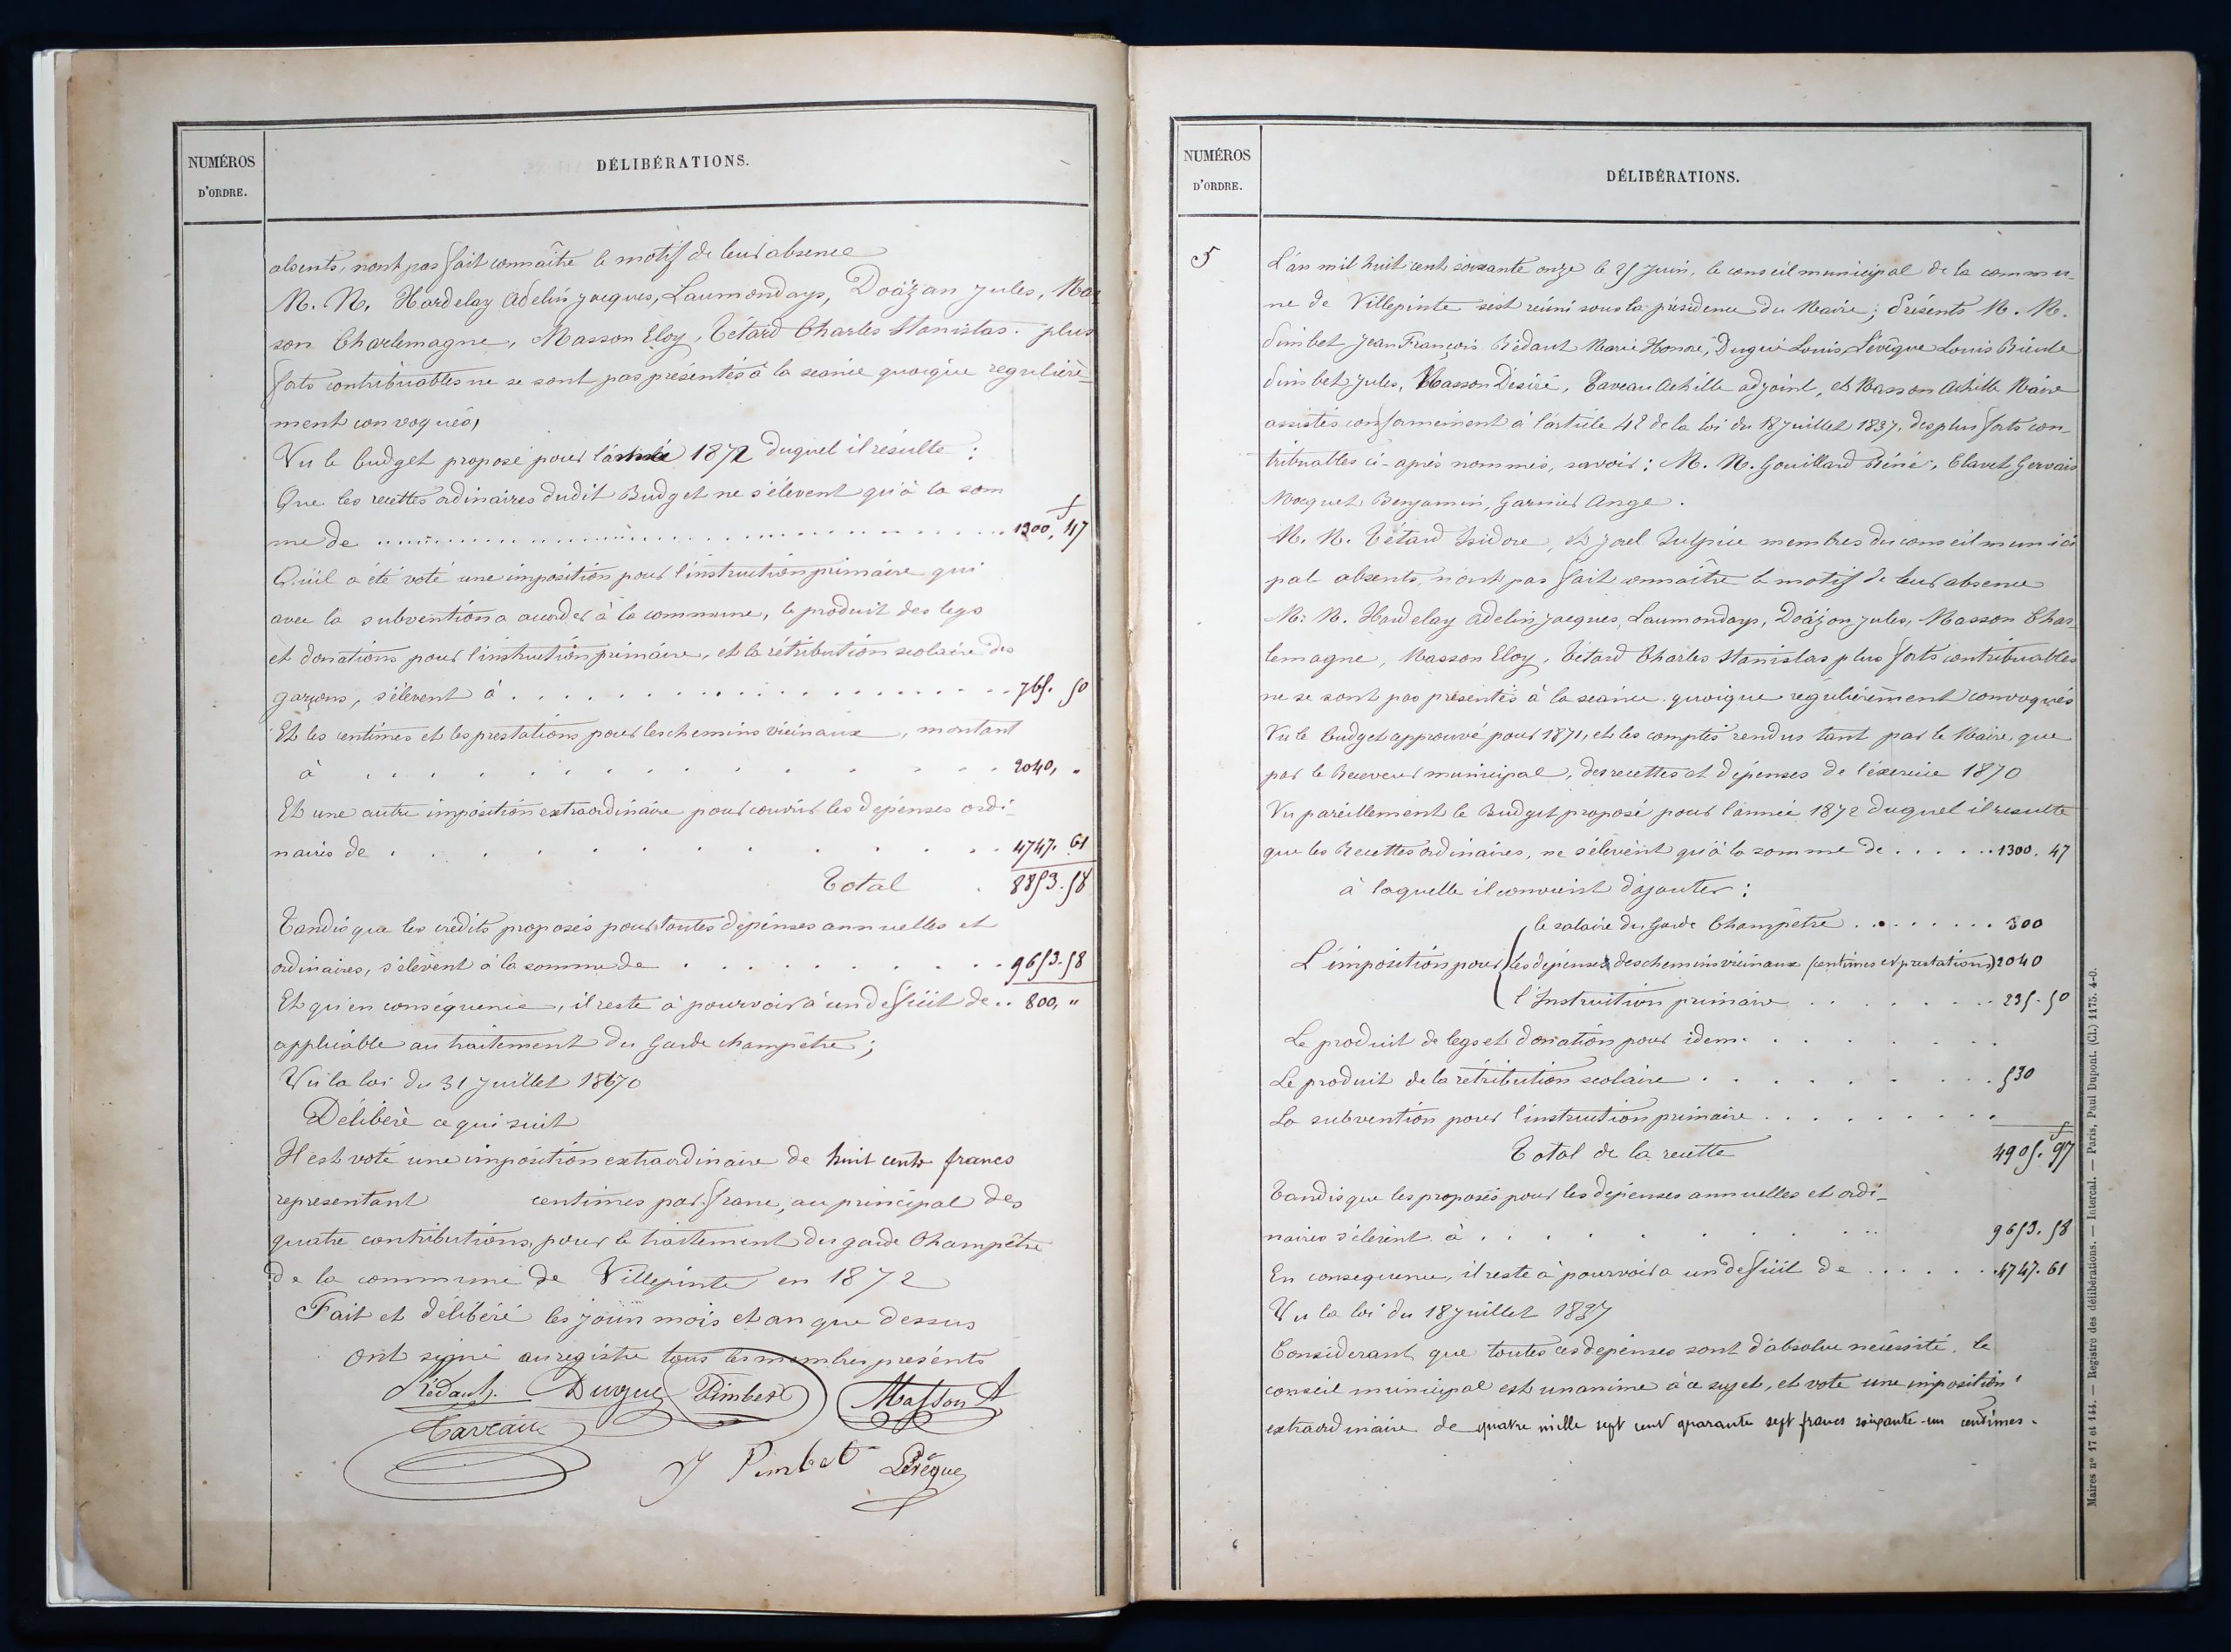 NUMÉROS
D'ORDRE.
DÉLIBÉRATIONS.
absents, n'ont pas fait connaître le motif de leur absence
M. M. Hardelay Adelin Jacques, Laumondays, Doäzan Jules, Mas
son Charlemagne, Masson Eloy, Tétard Charles Stanislas. plus
forts contribuables ne se sont pas présentés à la seance quoique regulière-
ment convoqués,
Vu le budget proposé pour l'année 1872 duquel il résulte :
Que les recettes ordinaires dudit Budget ne s'élevent qu'à la som
me de ........ 1300, 47
Qu'il a été voté une imposition pour l'instruction primaire qui
avec la subvention a accorder à la commune, le produit des legs
et donations pour l'instruction primaire, et la rétribution scolaire des
garçons, s'élevent à ........ 765. 50
Et les centimes et les prestations pour les chemins vicinaux, montant
à ........ 2040, "
Et une autre imposition extraordinaire pour couvrir les depenses ordi-
naires de ........ 4747. 61
Total . 8853.58
Tandis que les crédits proposés pour toutes dépenses annuelles et
ordinaires, s'élèvent à la somme de ........ 9653.58
Et qu'en conséquence, il reste à pourvoir à un deficit de .. 800, "
applicable au traitement du Garde champêtre ;
Vu la loi du 31 Juillet 1870
Délibère ce qui suit
Il est voté une imposition extraordinaire de huit cents francs
representant centimes par franc, au principal des
quatre contributions, pour le traitement du garde Champêtre
de la commune de Villepinte en 1872
Fait et délibéré les jour mois et an que dessus
Ont signé au registre tous les membres présents
Rédault. Dugué Pimbet Masson A
Taveau
J Pimbet Levêque
NUMÉROS
D'ORDRE.
DÉLIBÉRATIONS.
5
L'an mil huit cent soixante onze le 25 Juin, le conseil municipal de la commu-
ne de Villepinte s'est réuni sous la présidence du Maire ; Présents M. M.
Pimbet Jean François Rédault Marie Honoré, Dugué Louis, Levêque Louis
Pimbet Jules, Masson Désiré, Taveau Achille adjoint, et Masson Achille Maire
assistés conformément à l'article 42 de la loi du 18 Juillet 1837, des plus forts con-
tribuables ci-après nommés, savoir : M. M. Gouillard Réné, Clavet Gervais
Mocquet Benjamin, Garnier Ange.
M. M. Tétard Isidore, et Jorel Sulpice membres du conseil munici
pal absents, n'ont pas fait connaître le motif de leur absence
M. M. Hardelay Adelin Jacques, Laumondays, Doäzan Jules, Masson Char-
lemagne, Masson Eloy, Tétard Charles Stanislas plus forts contribuables
ne se sont pas présentés à la seance quoique regulièrement convoqués
Vu le budget approuvé pour 1871, et les comptes rendus tant par le Maire, que
par le Receveur municipal, des recettes et dépenses de l'exercice 1870
Vu pareillement le Budget proposé pour l'année 1872 duquel il resulte
que les Recettes ordinaires, ne s'élèvent qu'à la somme de ...... 1300. 47
à laquelle il convient d'ajouter :
le salaire du Garde Champêtre ........ 800
L'imposition pour les dépenses des chemins vicinaux (centimes et prestations) 2040
l'Instruction primaire ........ 235. 50
Le produit de legs et donation pour idem. ........
Le produit de la rétribution scolaire ........ 530
La subvention pour l'instruction primaire ........
Total de la recette 4905. 97
Tandis que les proposés pour les dépenses annuelles et ordi-
naires s'élèvent à ........ 9653. 58
En consequence, il reste à pourvoir a un deficit de ...... 4747. 61
Vu la loi du 18 Juillet 1837
Considerant que toutes ces depenses sont d'absolue nécessité, le
conseil municipal est unanime à ce sujet, et vote une imposition
extraordinaire de quatre mille sept cent quarante sept francs soixante-un centimes.
Maires nos 17 et 144. — Registre des délibérations. — Intercal. — Paris, Paul Dupont. (Cl.) 1175. 4-0.